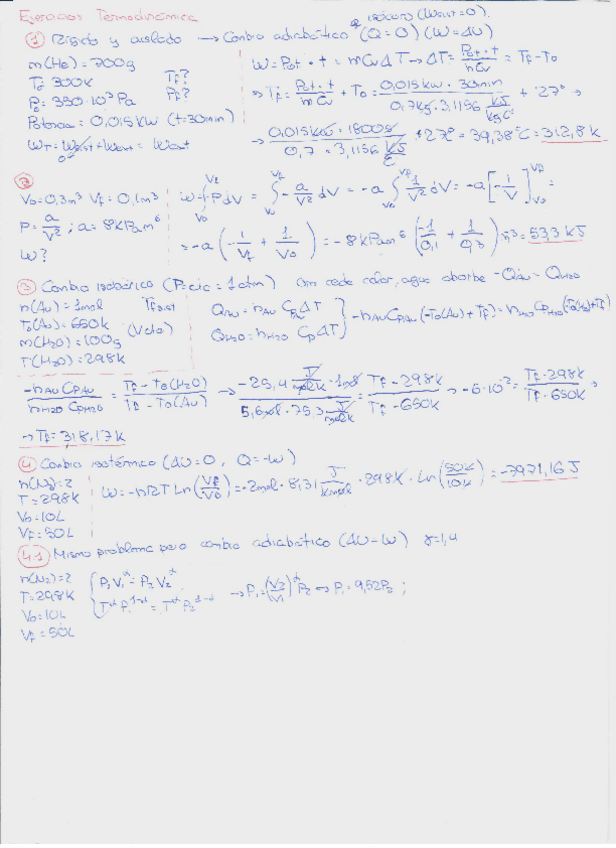 Ejercicios Termodinámica
① Rígido y aislado → Cambio adiabático (Q=0) (W=ΔU)
e isócoro (Wexit=0).
m(He) = 700g
T₀ = 300K Tf?
P₀ = 350·10³Pa Pf?
Potencia = 0,015 kW (t=30min)
W = Pot · t = m Cv ΔT → ΔT = Pot·t / mCv = Tf - T₀
→ Tf = Pot·t / mCv + T₀ = 0,015kW·30min / 0,7kg·3,1156 kJ/kgC° + 27° →
→ 0,015kW·1800s / 0,7·3,1156 kJ/C + 27° = 39,38°C = 312,8K
②
V₀=0,3m³ Vf=0,1m³
P = a/V² ; a = 8kPam⁶
W?
W = ∫ PdV = ∫ - a/V² dV = -a ∫ 1/V² dV = -a[-1/V] =
= -a(-1/Vf + 1/V₀) = -8kPam⁶(-1/0,1 + 1/0,3)m⁻³ = 53,3 kJ
③ Cambio isobárico (P=cte=1atm) Om cede calor, agua absorbe -QAu = QH₂O
n(Au) = 1mol Tfsist
T₀(Au) = 650K (Vcte)
m(H₂O) = 100g
T(H₂O) = 298K
QAu = nAu Cp ΔT
QH₂O = nH₂O Cp ΔT
-nAu CpAu (-T₀(Au) + Tf) = nH₂O CpH₂O (-T₀(H₂O) + Tf)
-nAu CpAu / nH₂O CpH₂O = Tf - T₀(H₂O) / Tf - T₀(Au) → -25,4 J/molK · 1mol / 5,6mol · 75,3 J/molK = Tf - 298K / Tf - 650K → -6·10⁻² = Tf - 298K / Tf - 650K →
→ Tf = 318,17K
④ Cambio isotérmico (ΔU=0, Q=-W)
n(N₂) = 2
T = 298K
V₀ = 10L
Vf = 50L
W = -nRT Ln(Vf/V₀) = -2mol · 8,31 J/Kmol · 298K · Ln(50L/10L) = -7971,16 J
4.1 Mismo problema pero cambio adiabático (ΔU=W) γ=1,4
n(N₂) = 2
T = 298K
V₀ = 10L
Vf = 50L
P₁V₁ᵅ = P₂V₂ᵅ
TᵅP₁¹⁻ᵅ = TᵅP₂¹⁻ᵅ
→ P₁ = (V₂/V₁)ᵅ P₂ → P₁ = 9,52P₂ ;